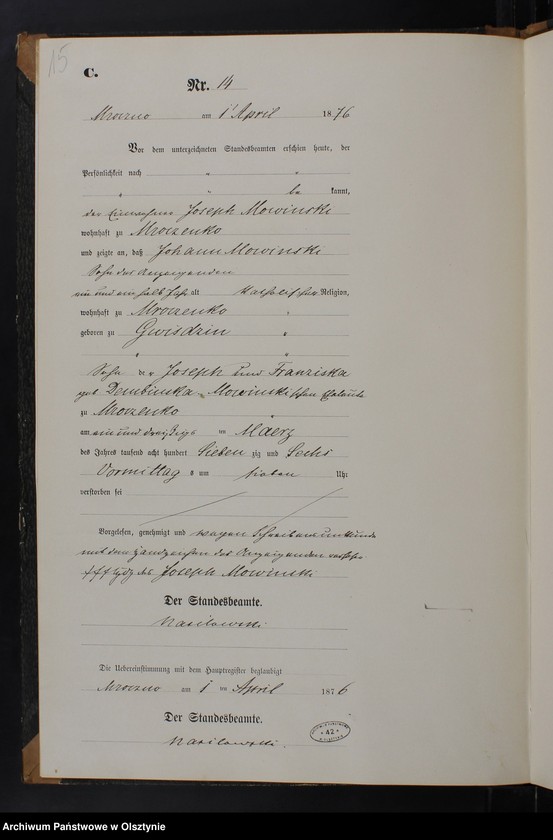 15
C.
Nr. 14
Mroczno am 1t April 1876
Vor dem unterzeichneten Standesbeamten erschien heute, der
Persönlichkeit nach
be kannt,
der Einwohner Joseph Mowinski
wohnhaft zu Mroczenko
und zeigte an, daß Johann Mowinski
Sohn des Anzeigenden
ein und ein halb Jahr alt Katholischer Religion,
wohnhaft zu Mroczenko
geboren zu Gwisdzin
Sohn der Joseph und Franziska
geb Dembinska Mowinskischen Eheleute
zu Mroczenko
am ein und dreißigs ten Maerz
des Jahres tausend acht hundert Sieben zig und Sechs
Vormittag s um sieben Uhr
verstorben sei
Vorgelesen, genehmigt und wegen Schreibensunkunde
mit dem Handzeichen des Anzeigenden versehen
+++ Hdz des Joseph Mowinski
Der Standesbeamte.
Nasilowski
Die Uebereinstimmung mit dem Hauptregister beglaubigt
Mroczno am 1 ten April 1876
Der Standesbeamte.
Nasilowski.
42
Archiwum Państwowe w Olsztynie